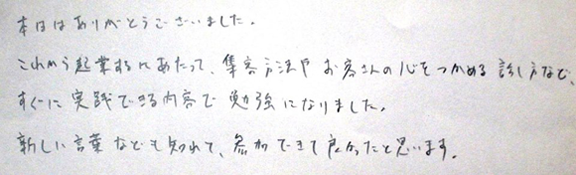 本日はありがとうございました。
これから起業するにあたって、集客方法やお客さんの心をつかめる話し方など、
すぐに実践できる内容で勉強になりました。
新しい言葉なども知れて、参加できて良かったと思います。